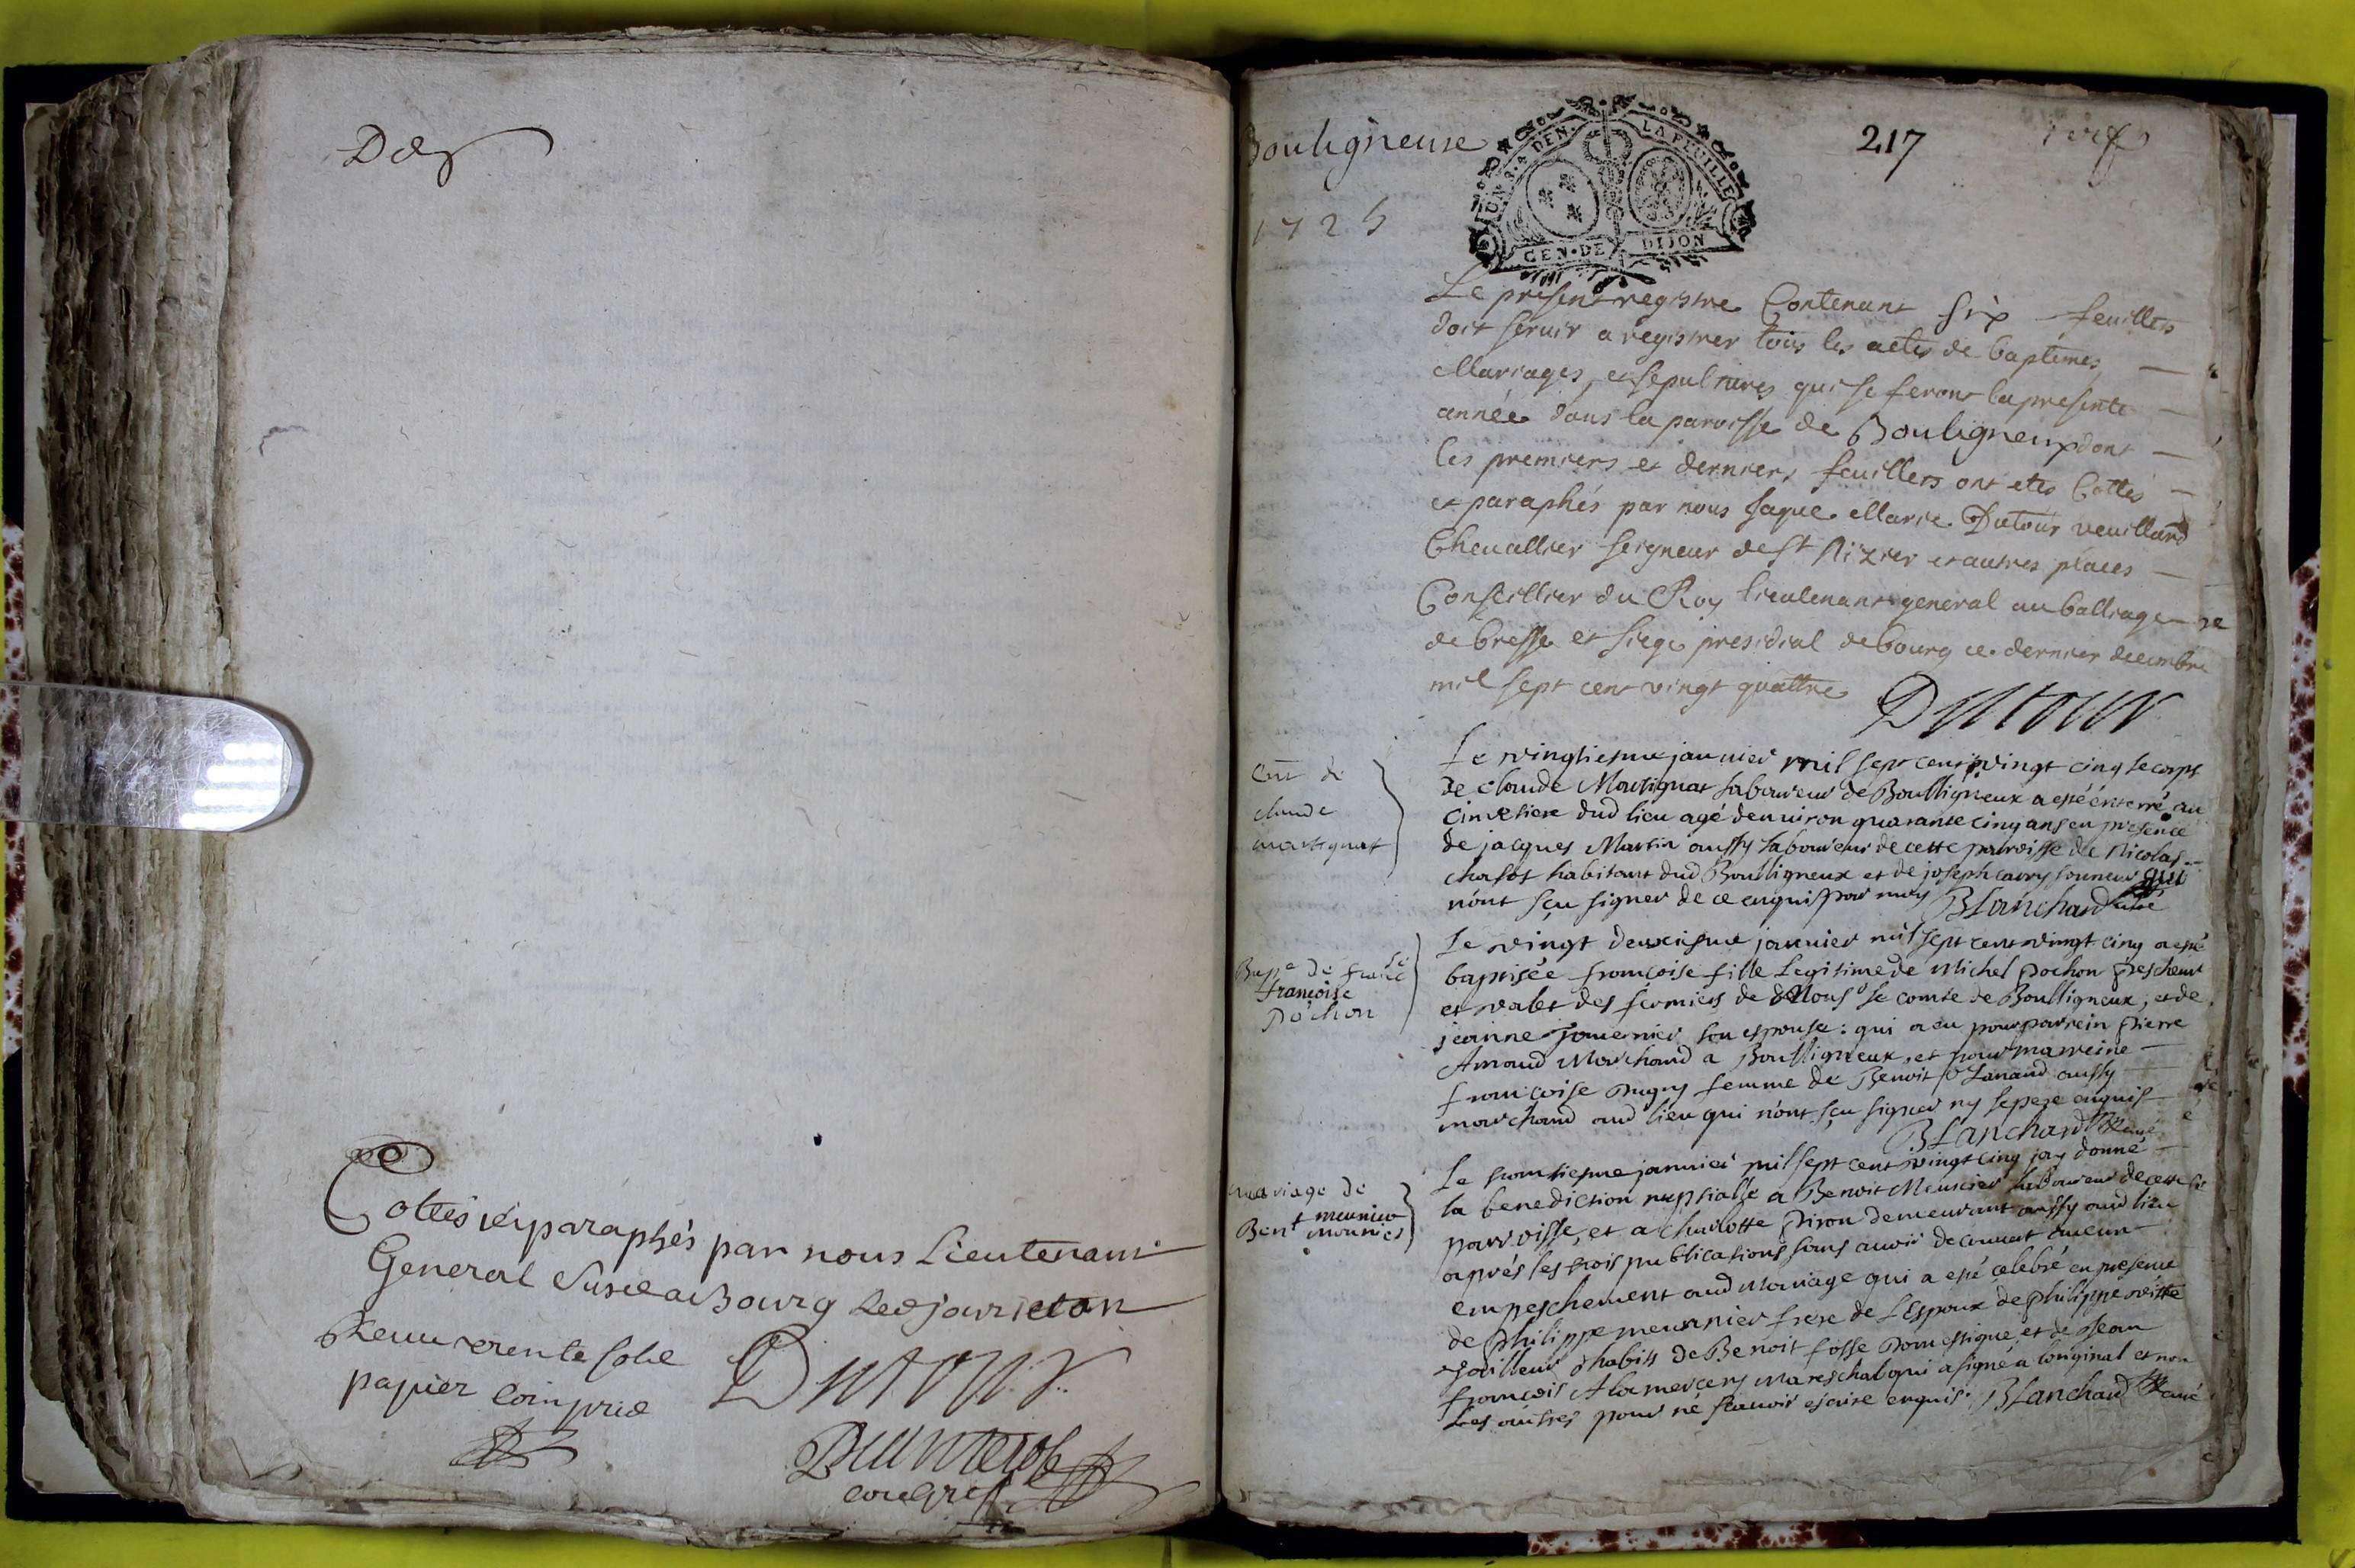 Cottés et paraphés par nous Lieutenant
General susd a Bourg
Receu trente sols
papier compris
Dutour
Bouligneux
217
1725
LA FEUILLE
GEN·DE DIJON
Le present registre Contenant six feuillets
doit servir a registrer tous les actes de baptêmes,
Mariages, et sepultures qui se feront la presente
année dans la paroisse de Bouligneux dont
les premiers et derniers feuillets ont etes Cottés
et paraphés par nous Jaque Marie Dutour veuillard
Chevallier seigneur de St Nizier et autres places
Conseiller du Roy lieutenant general au balliage
de bresse et siege presidial de bourg ce dernier decembre
mil sept cent vingt quattre
Dutour
claude
martignat
Le vingtiesme janvier mil sept cent vingt cinq le corps
de claude Martignat laboureur de Boulligneux a esté énterré au
cimetiere dud lieu agé denviron quarante cinq ans en presence
de jacques Martin aussy laboureur de cette parroisse de Nicolas
habitant dud Boulligneux et de joseph sonneur qui
n'ont sçu signer de ce enquis par moy Blanchard curé
Bap de
françoise
Pochon
Le vingt deuxiesme janvier mil sept cent vingt cinq a esté
baptisée françoise fille legitime de Michel Pochon pescheur
et valet des fermiers de le comte de Boulligneux, et de
jeanne son espouse: qui a eu pour parrein pierre
Marchand a Boulligneux, et pour marreine
françoise femme de Benoit aussy
marchand aud lieu qui n'ont sçu signer ny le pere enquis
Blanchard Curé
mariage de
meunier
Bent meunier
Le trentiesme janvier mil sept cent vingt cinq jay donné
la benediction nuptialle a Benoit Meunier laboureur de cette
parroisse, et a charlotte Piron demeurant aussy aud lieu
aprés les trois publications sans avoir decouvert aucun
empeschement aud Mariage qui a esté celebré en presence
de philippe meunier frere de l'Espoux de philippe
tailleur d'habits de Benoit fosse Domestique et de Jean
françois Mareschal qui a signé a loriginal et non
Les autres pour ne scavoir escrire enquis. Blanchard Curé